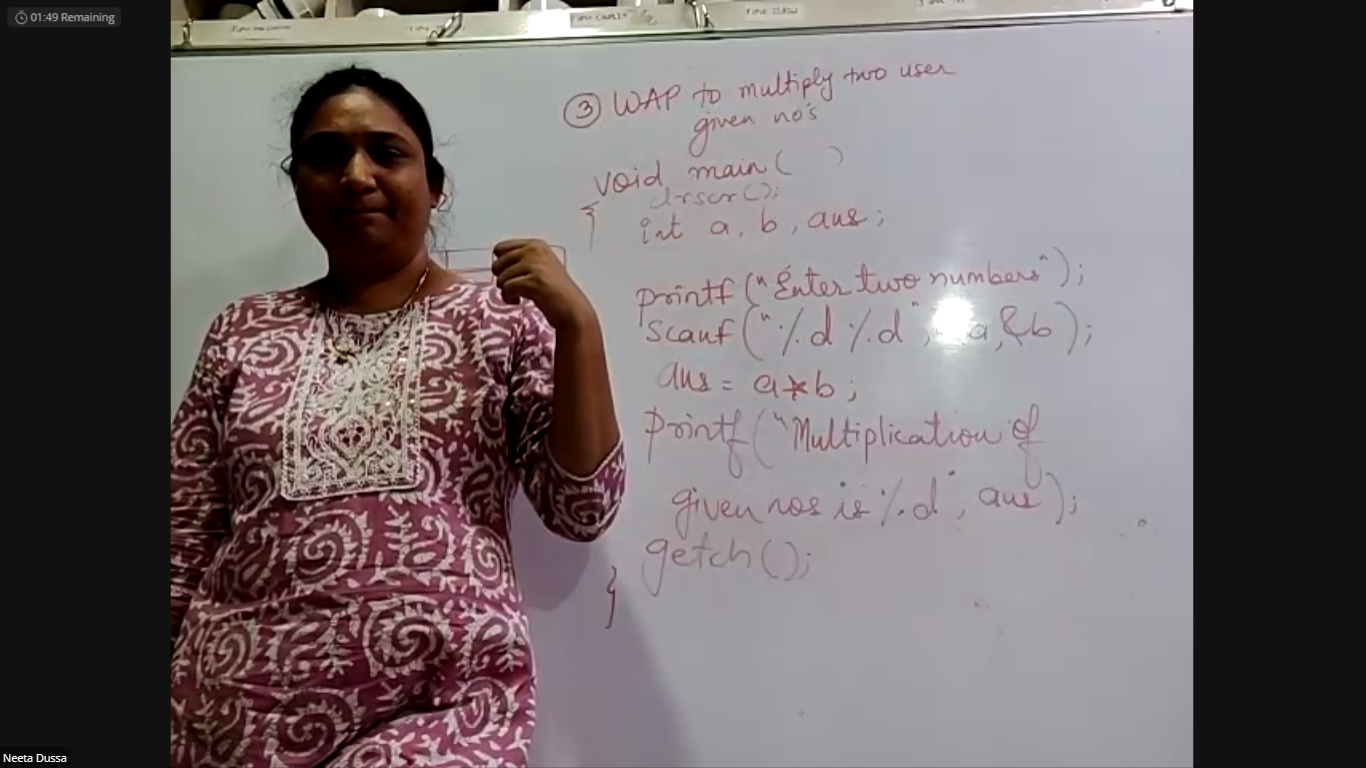 01:49 Remaining
③ WAP to multiply two user
given no's
void main( )
clrscr();
{
int a, b, ans;
printf("Enter two numbers");
scanf("%d %d", a,&b);
ans = a*b;
printf("Multiplication of
given nos is %d", ans);
getch();
}
Neeta Dussa